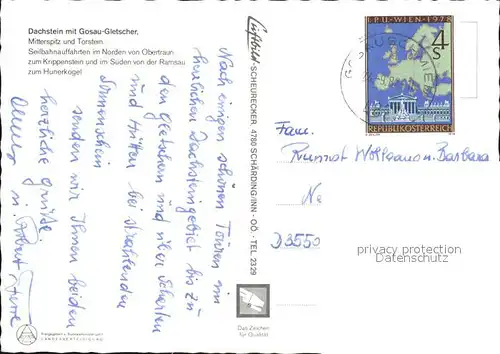 Dachstein mit Gosau-Gletscher,
Mitterspitz und Torstein.
Seilbahnauffahrten im Norden von Obertraun
zum Krippenstein und im Süden von der Ramsau
zum Hunerkogel
Nach einigen schönen Touren im
herrlichen Dachsteingebiet bis zu
den Gletschern und vielen Scharten
und Hütten bei strahlendem
Sonnenschein
senden wir Ihnen beiden
herzliche Grüße.
Luftbild-SCHEURECKER 4780 SCHÄRDING/INN - OÖ. - TEL. 2329
I.P.U.-WIEN-1978
4
S
REPUBLIK ÖSTERREICH
Fam.
Wolfgang u. Barbara
D 3550
privacy protection
Datenschutz
Das Zeichen
für Qualität